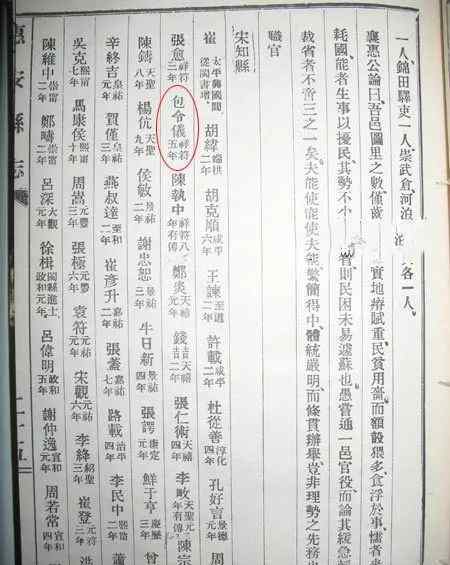 一人、錦田驛吏一人、崇武倉、河泊 各一人、
襄惠公論曰、吾邑圖里之數、僅當 實地瘠賦重、民貧用嗇、而額設猥多、食浮於事、惰者坐
耗國、能者生事以擾民、其勢不小 省、則民困未易遽蘇也、愚嘗通一邑官役而論其緩急
裁省者不啻三之一矣、夫能使 使夫能繁簡得中、體統嚴明、而條貫辦舉、豈非理勢之先務
職官
宋知縣
崔 太平興國間從閩書增 胡緯 端拱二年 胡克順 咸平六年 王諫 至道二年 許載 咸平二年 杜從善 淳化四年 孔好言 景德元年 周
張愈 祥符三年 包令儀 祥符五年 陳執中 祥符八年有傳 鄭炎 天禧元年 錢吉 天禧二年 張仁術 天禧四年 李畋 天禧年有傳 陳宗
陳鑄 天聖八年 楊伉 天聖九年 侯敏 景祐二年 謝忠恕 景祐三年 牛日新 景祐四年 張諤 康定元年 鮮于亨 慶歷三年 曾
辛終吉 皇祐元年 賀僅 皇祐三年 燕叔達 至和二年 崔彥升 嘉祐二年 張蓋 嘉祐七年 路載 治平四年 李民中 熙甯二年 蕭
吳克 熙甯七年 馬康侯 熙甯十年 周嵩 元豐三年 張極 元豐六年 袁符 元祐元年 宋觀 元祐六年 李絳 紹聖三年 崔登 元符三年 洪
陳維中 崇甯二年 鄭疇 崇甯二年 呂深 大觀元年 徐楫 閩縣進士政和元年 呂偉明 政和五年 謝仲逸 宣和元年 周若常 宣和四年
惠安縣志 二十五